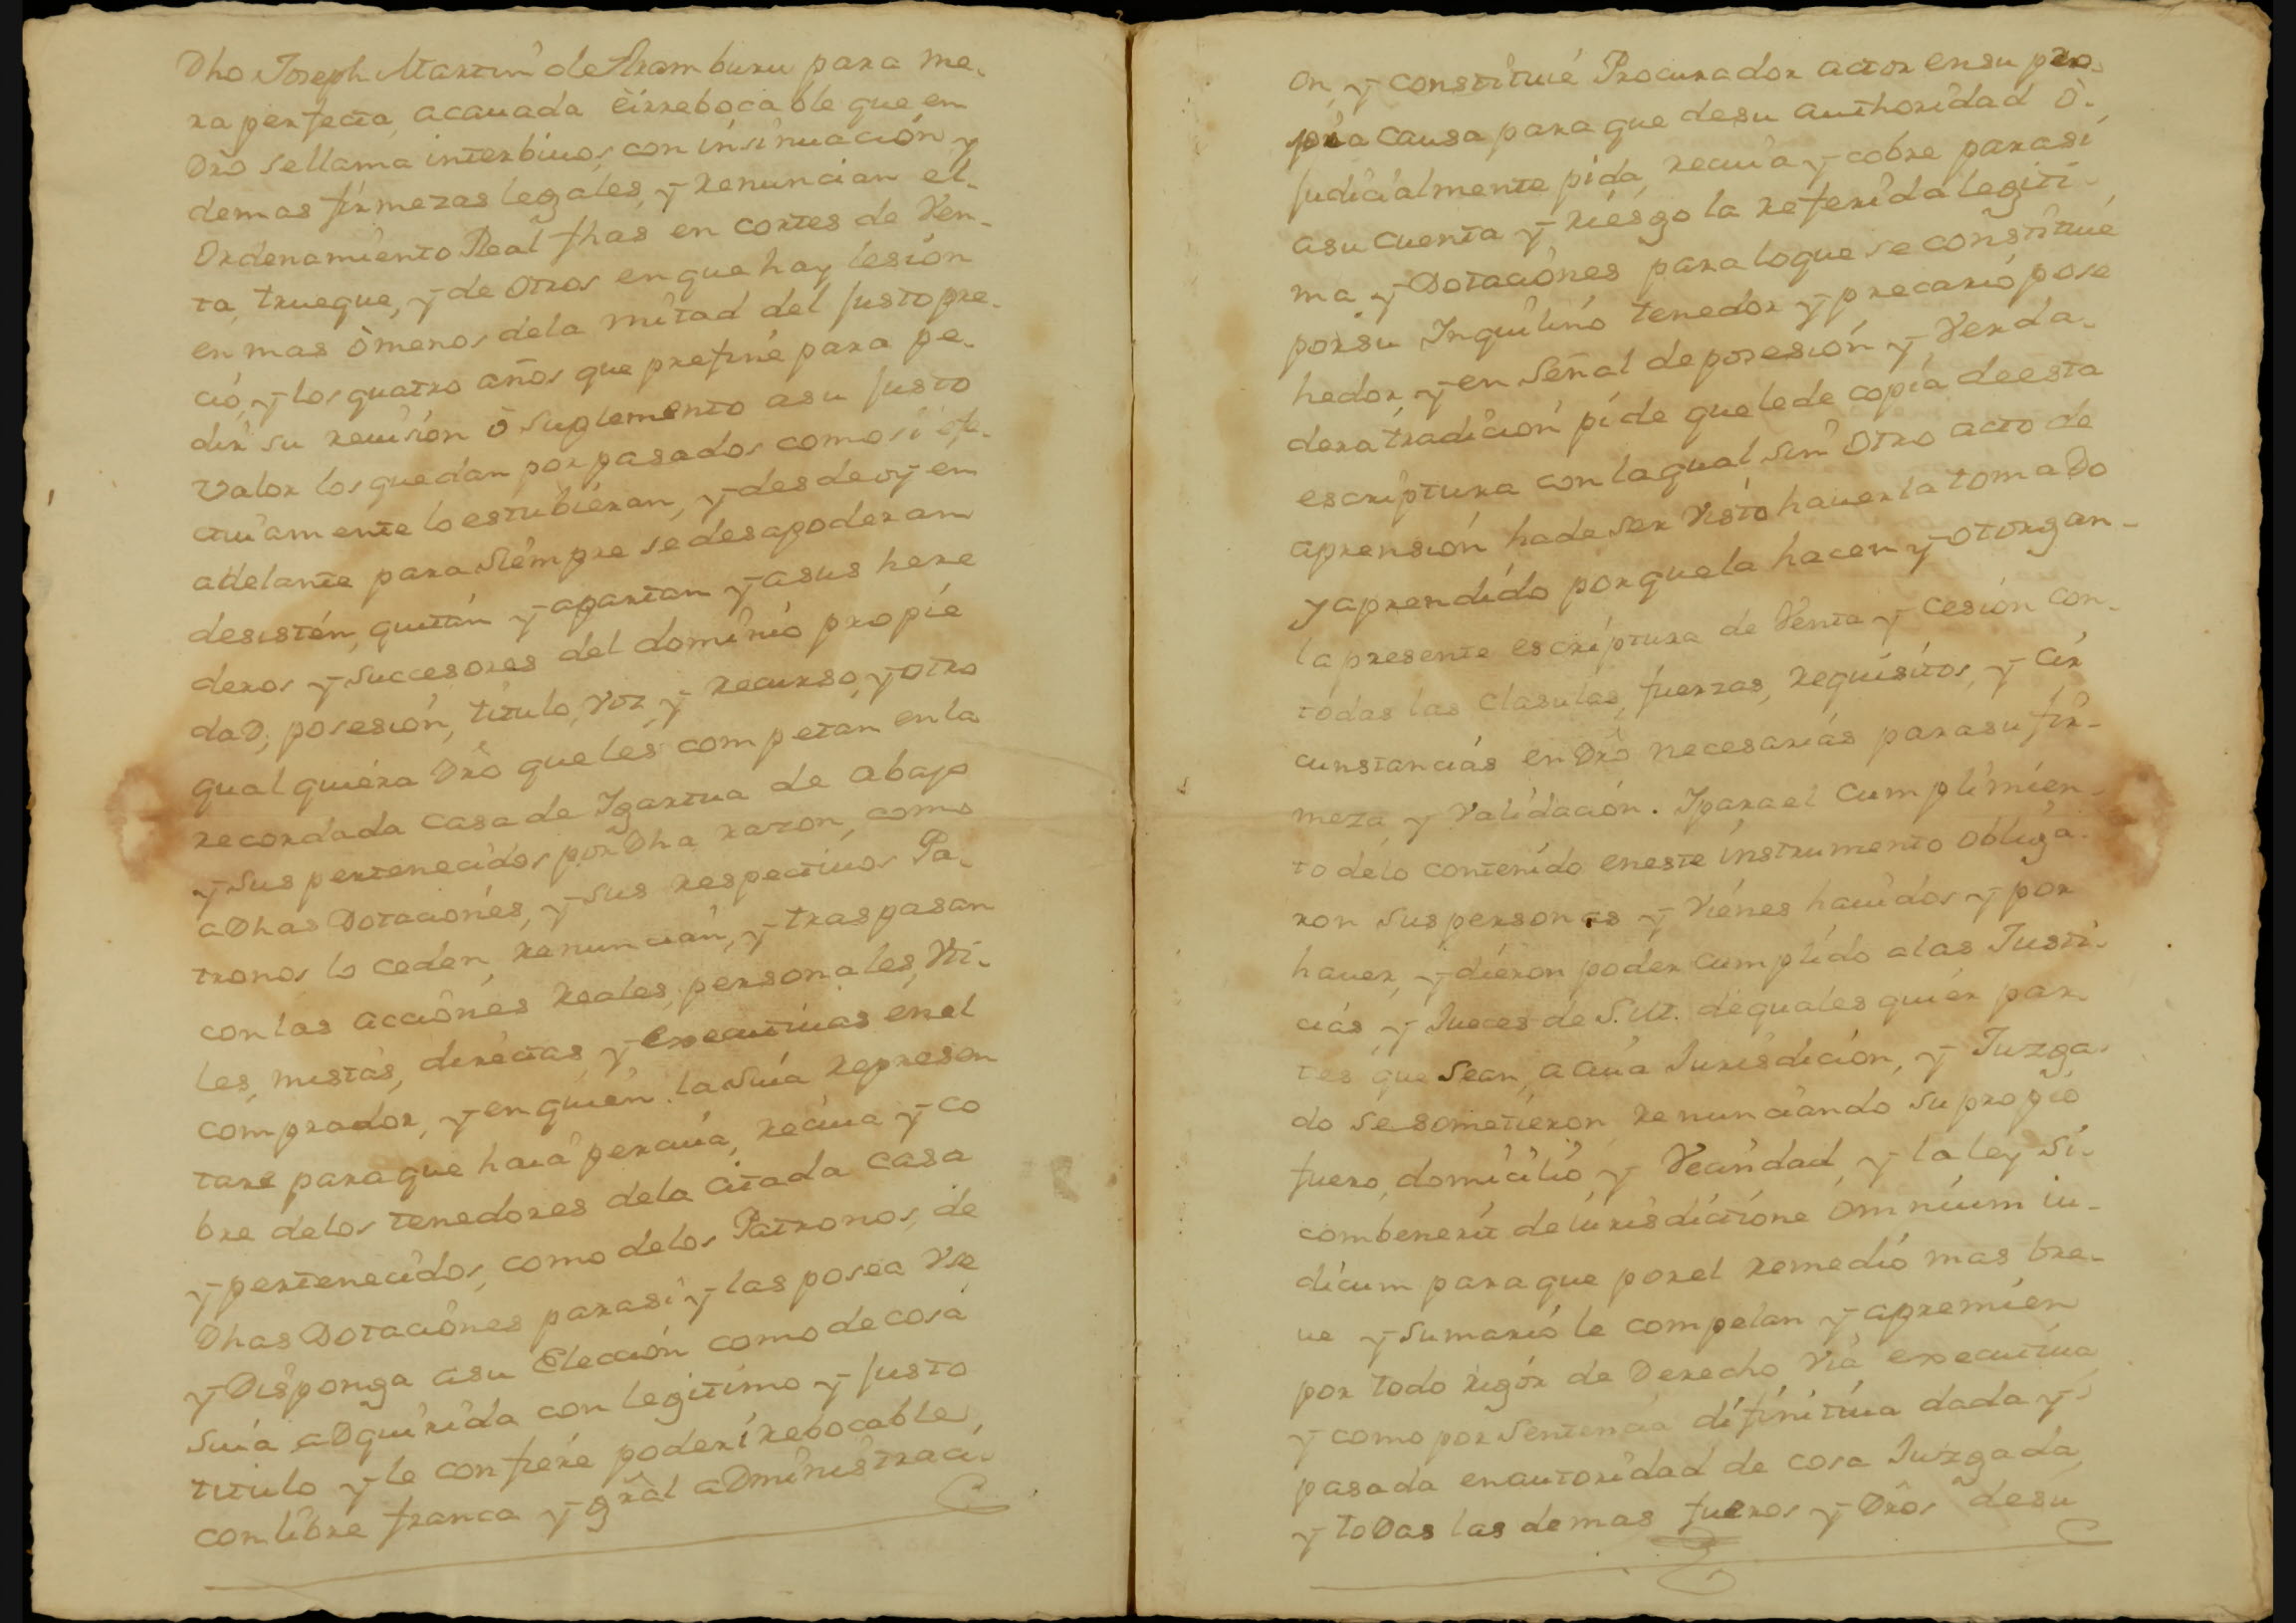 Dho Joseph Martin de Aramburu para me-
ra perfecta, acauada eirrebocable que en
Dro sellama interbiuos con insinuación y
demas firmezas legales, y renuncian el-
Ordenamiento Real fhas en cortes de Ven-
ta, trueque, y de Otros en que hay lesión
en mas ò menos dela mitad del Justo pre-
ció, y los quatro años que prefine para pe-
dir su reuisión ò Suplemento asu Justo
Valor los quedan por pasados como si efe-
ctiuamente lo estubiéran, y desde oy en
adelante para Siémpre se desapoderan
desistén, quitán y apartan y asus here
deros y Succesores del dominió propie
daD, posesión, titulo, voz, y recurso, y otro
qual quiéra Dro que les competan en la
recordada casa de Igartua de abajo
y Sus pertenecidos por Dha razon, como
a Dhas Dotaciónes, y Sus respectiuos Pa-
tronos lo ceden, renuncian, y traspasan
con las acciónes Reales, personales, Vti-
les, mistas, diréctas, y Executiuas en el
comprador, y en quién la Suia represen
tare para que haia perciua, reciua y co
bre delos tenedores dela citada casa
y pertenecidos, como delos Patronos, de
Dhas Dotaciónes parasi y las posea Vse
y Disponga asu Elección como de cosa
Suia aDquirida con legitimo y Justo
titulo y le confiére poder irebocable,
con libre franca y gral aDministraci-
on, y constituié Procurador actor ensu pro-
pria causa para que desu authoridad ò-
Judicialmente pida, reciua y cobre parasi
asu cuenta y riésgo la referida legiti-
ma y Dotaciónes para loque se constituié
porsu Inquilinó tenedor y precarió pose
hedor, y en Señal de posesión y Verda-
dera tradición pide quelede copia de esta
escriptura con laqual sin otro acto de
aprensión hade ser Visto hauerla tomaDo
y aprendido porque la hacen y otorgan-
la presente escriptura de Venta y cesión con-
todas las Clasulas, fuerzas, requisitos, y cir
cunstanciás en Dro necesariás parasu fir-
meza y Validación. Iparael Cumplimien-
to délo contenido eneste instrumento obliga-
ron Sus personas y Viénes hauidos y por
hauer, y diéron poder cumplido alas Justi-
ciás, y Jueces de S.M. dequales quiér par-
tes que Sean, a cuia Jurisdición, y Juzga-
do Se sometiéron renunciando Su propió
fuero, domicilió y Vecindad y la ley Si-
combenerit de iurisdictióne omnium iu-
dicum para que porel remedió mas bre-
ue y Sumarió le compelan y apremién
por todo rigor de Derecho Via executiua
y como por Sentencia difinitiua dada y
pasada enautoridad de cosa Juzgada,
y toDas las demas fueros y Dros desu